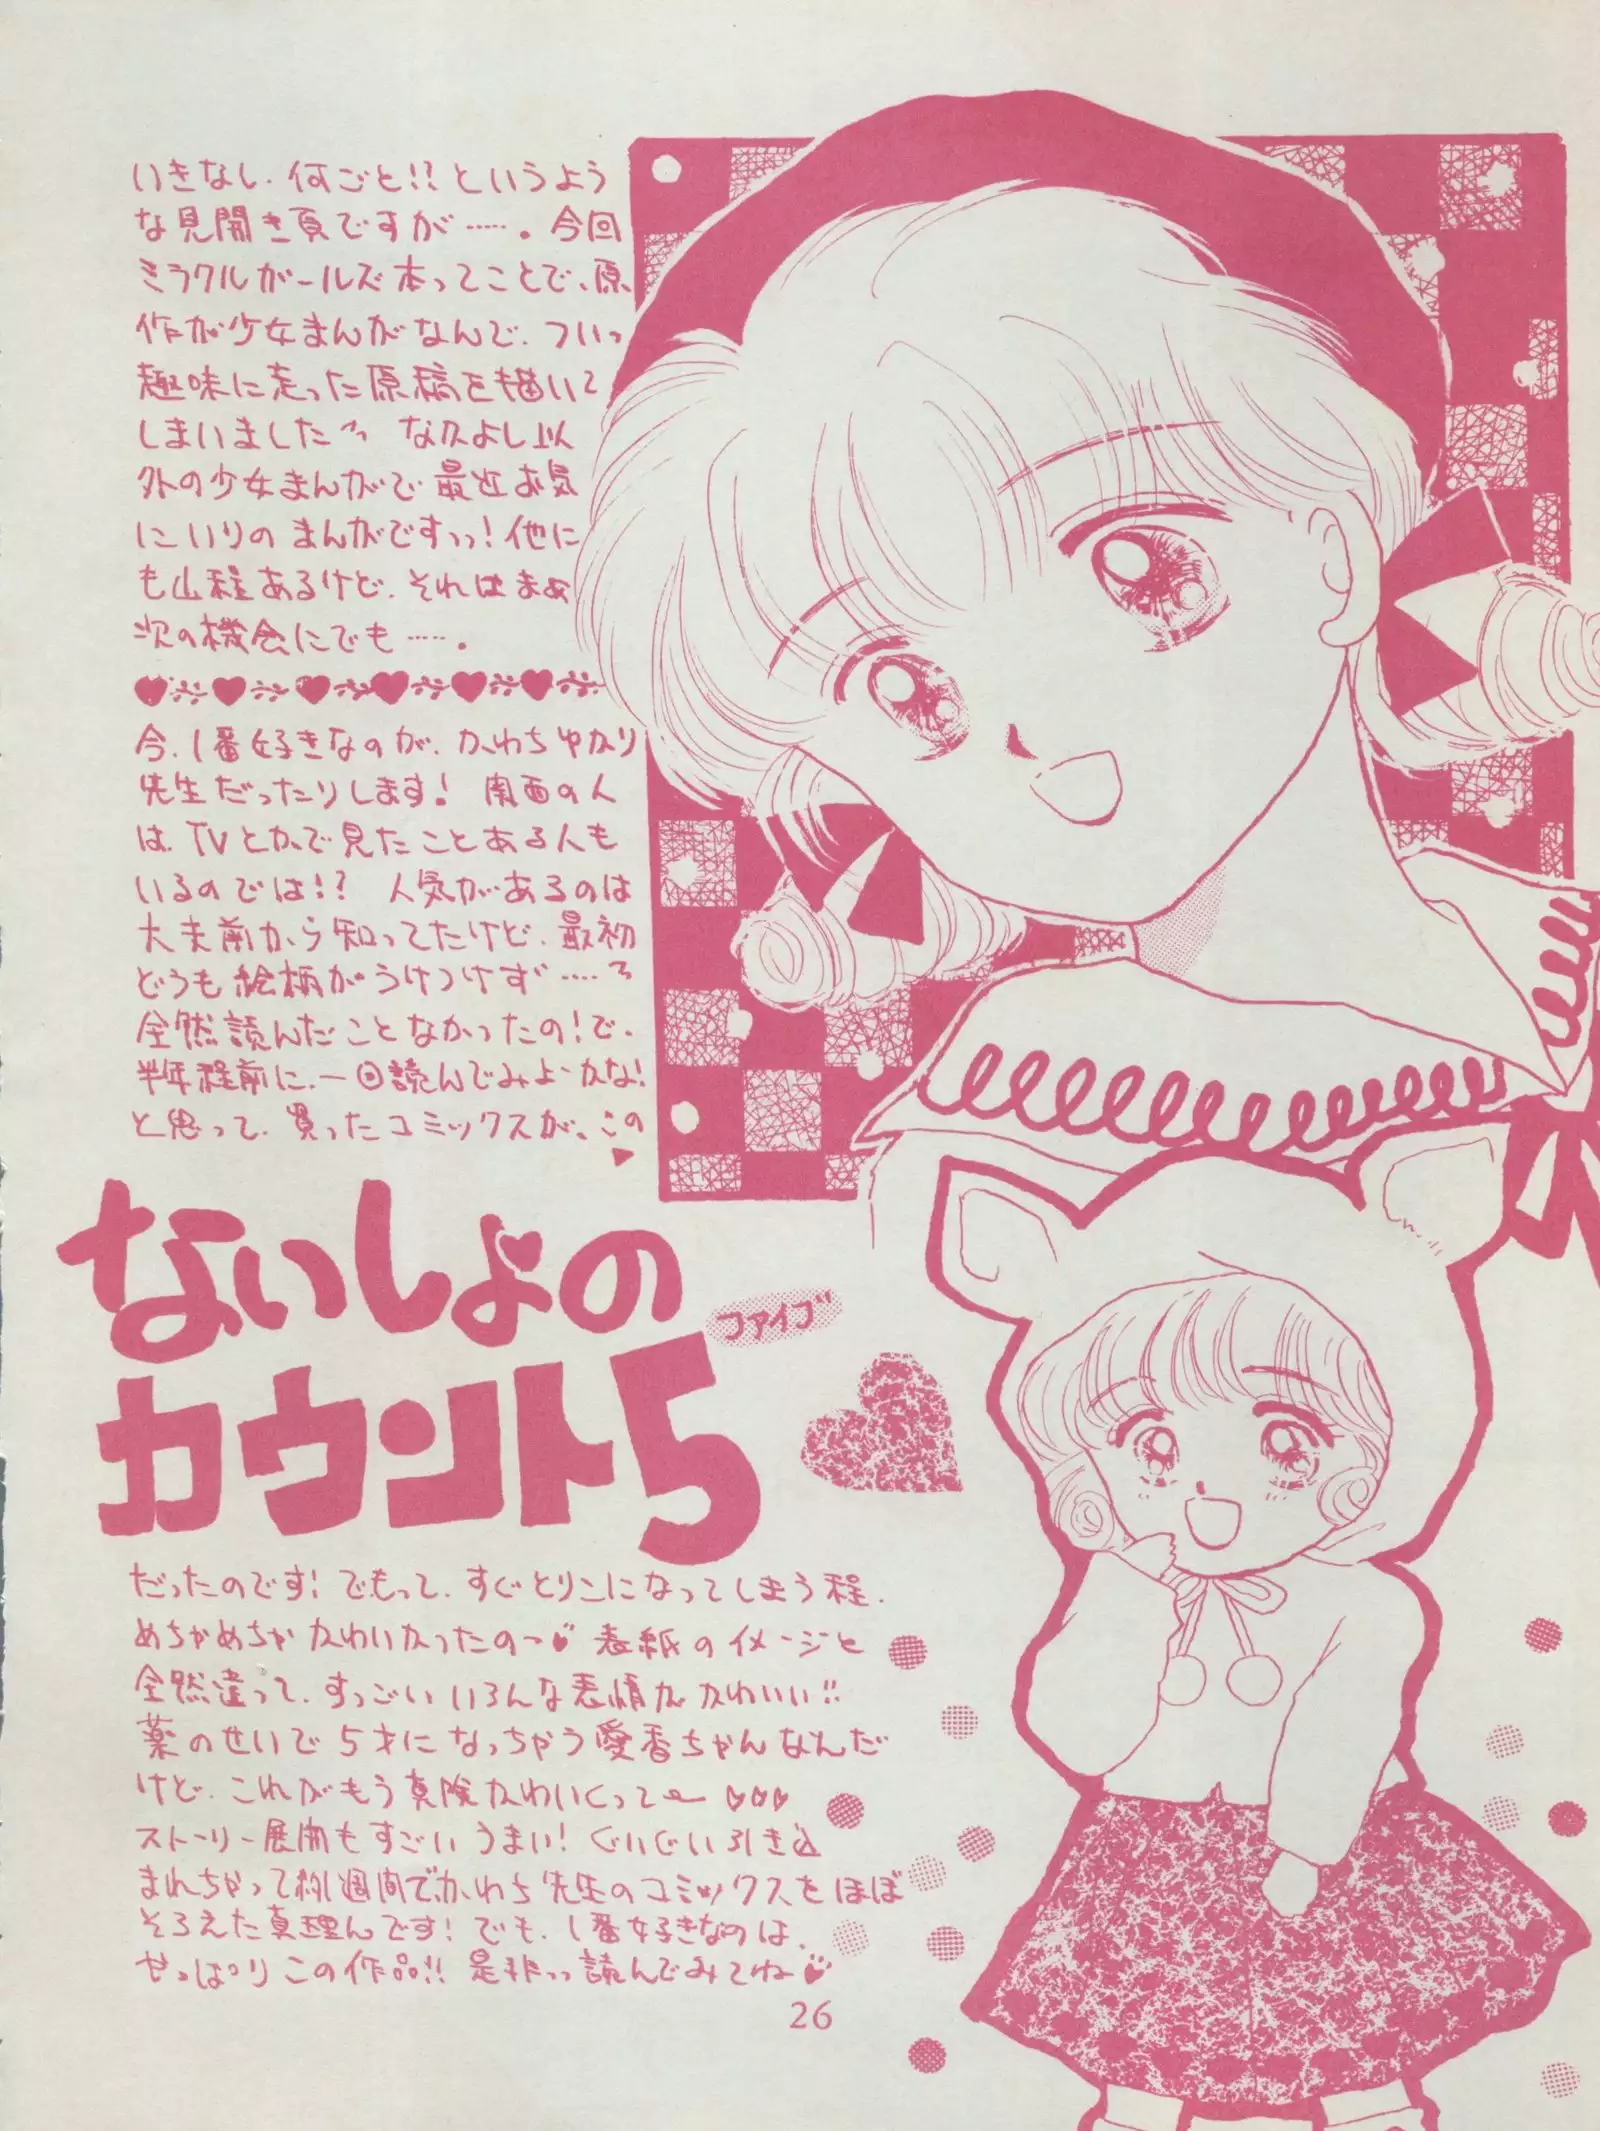 いきなし、何ごと!?というよう
な見開き頁ですが……。今回
ミラクルガールズ本ってことで、原
作が少女まんがなんで、ついっ
趣味に走った原稿を描いて
しまいました なかよし以
外の少女まんがで最近お気
にいりのまんがですっっ!他に
も山程あるけど、それはまぁ
次の機会にでも……。
今、1番好きなのが、かわちゆかり
先生だったりします! 関西の人
は、TVとかで見たことある人も
いるのでは!? 人気があるのは
大夫前から知ってたけど、最初
どうも絵柄がうけつけず……
全然読んだことなかったの!で、
半年程前に、一回読んでみよーかな!
と思って、買ったコミックスが、この
ないしょの
カウント5
ファイブ
だったのです! でもって、すぐとりこになってしまう程、
めちゃめちゃかわいかったの〜 表紙のイメージと
全然違って、すっごいいろんな表情がかわいい!!
薬のせいで5才になっちゃう愛香ちゃんなんだ
けど、これがもう真険かわいくって〜♡♡♡
ストーリー展開もすごいうまい! ぐいぐい引き込
まれちゃって約1週間でかわち先生のコミックスをほぼ
そろえた真理んです! でも、1番好きなのは、
やっぱりこの作品!! 是非っっ読んでみてね
26